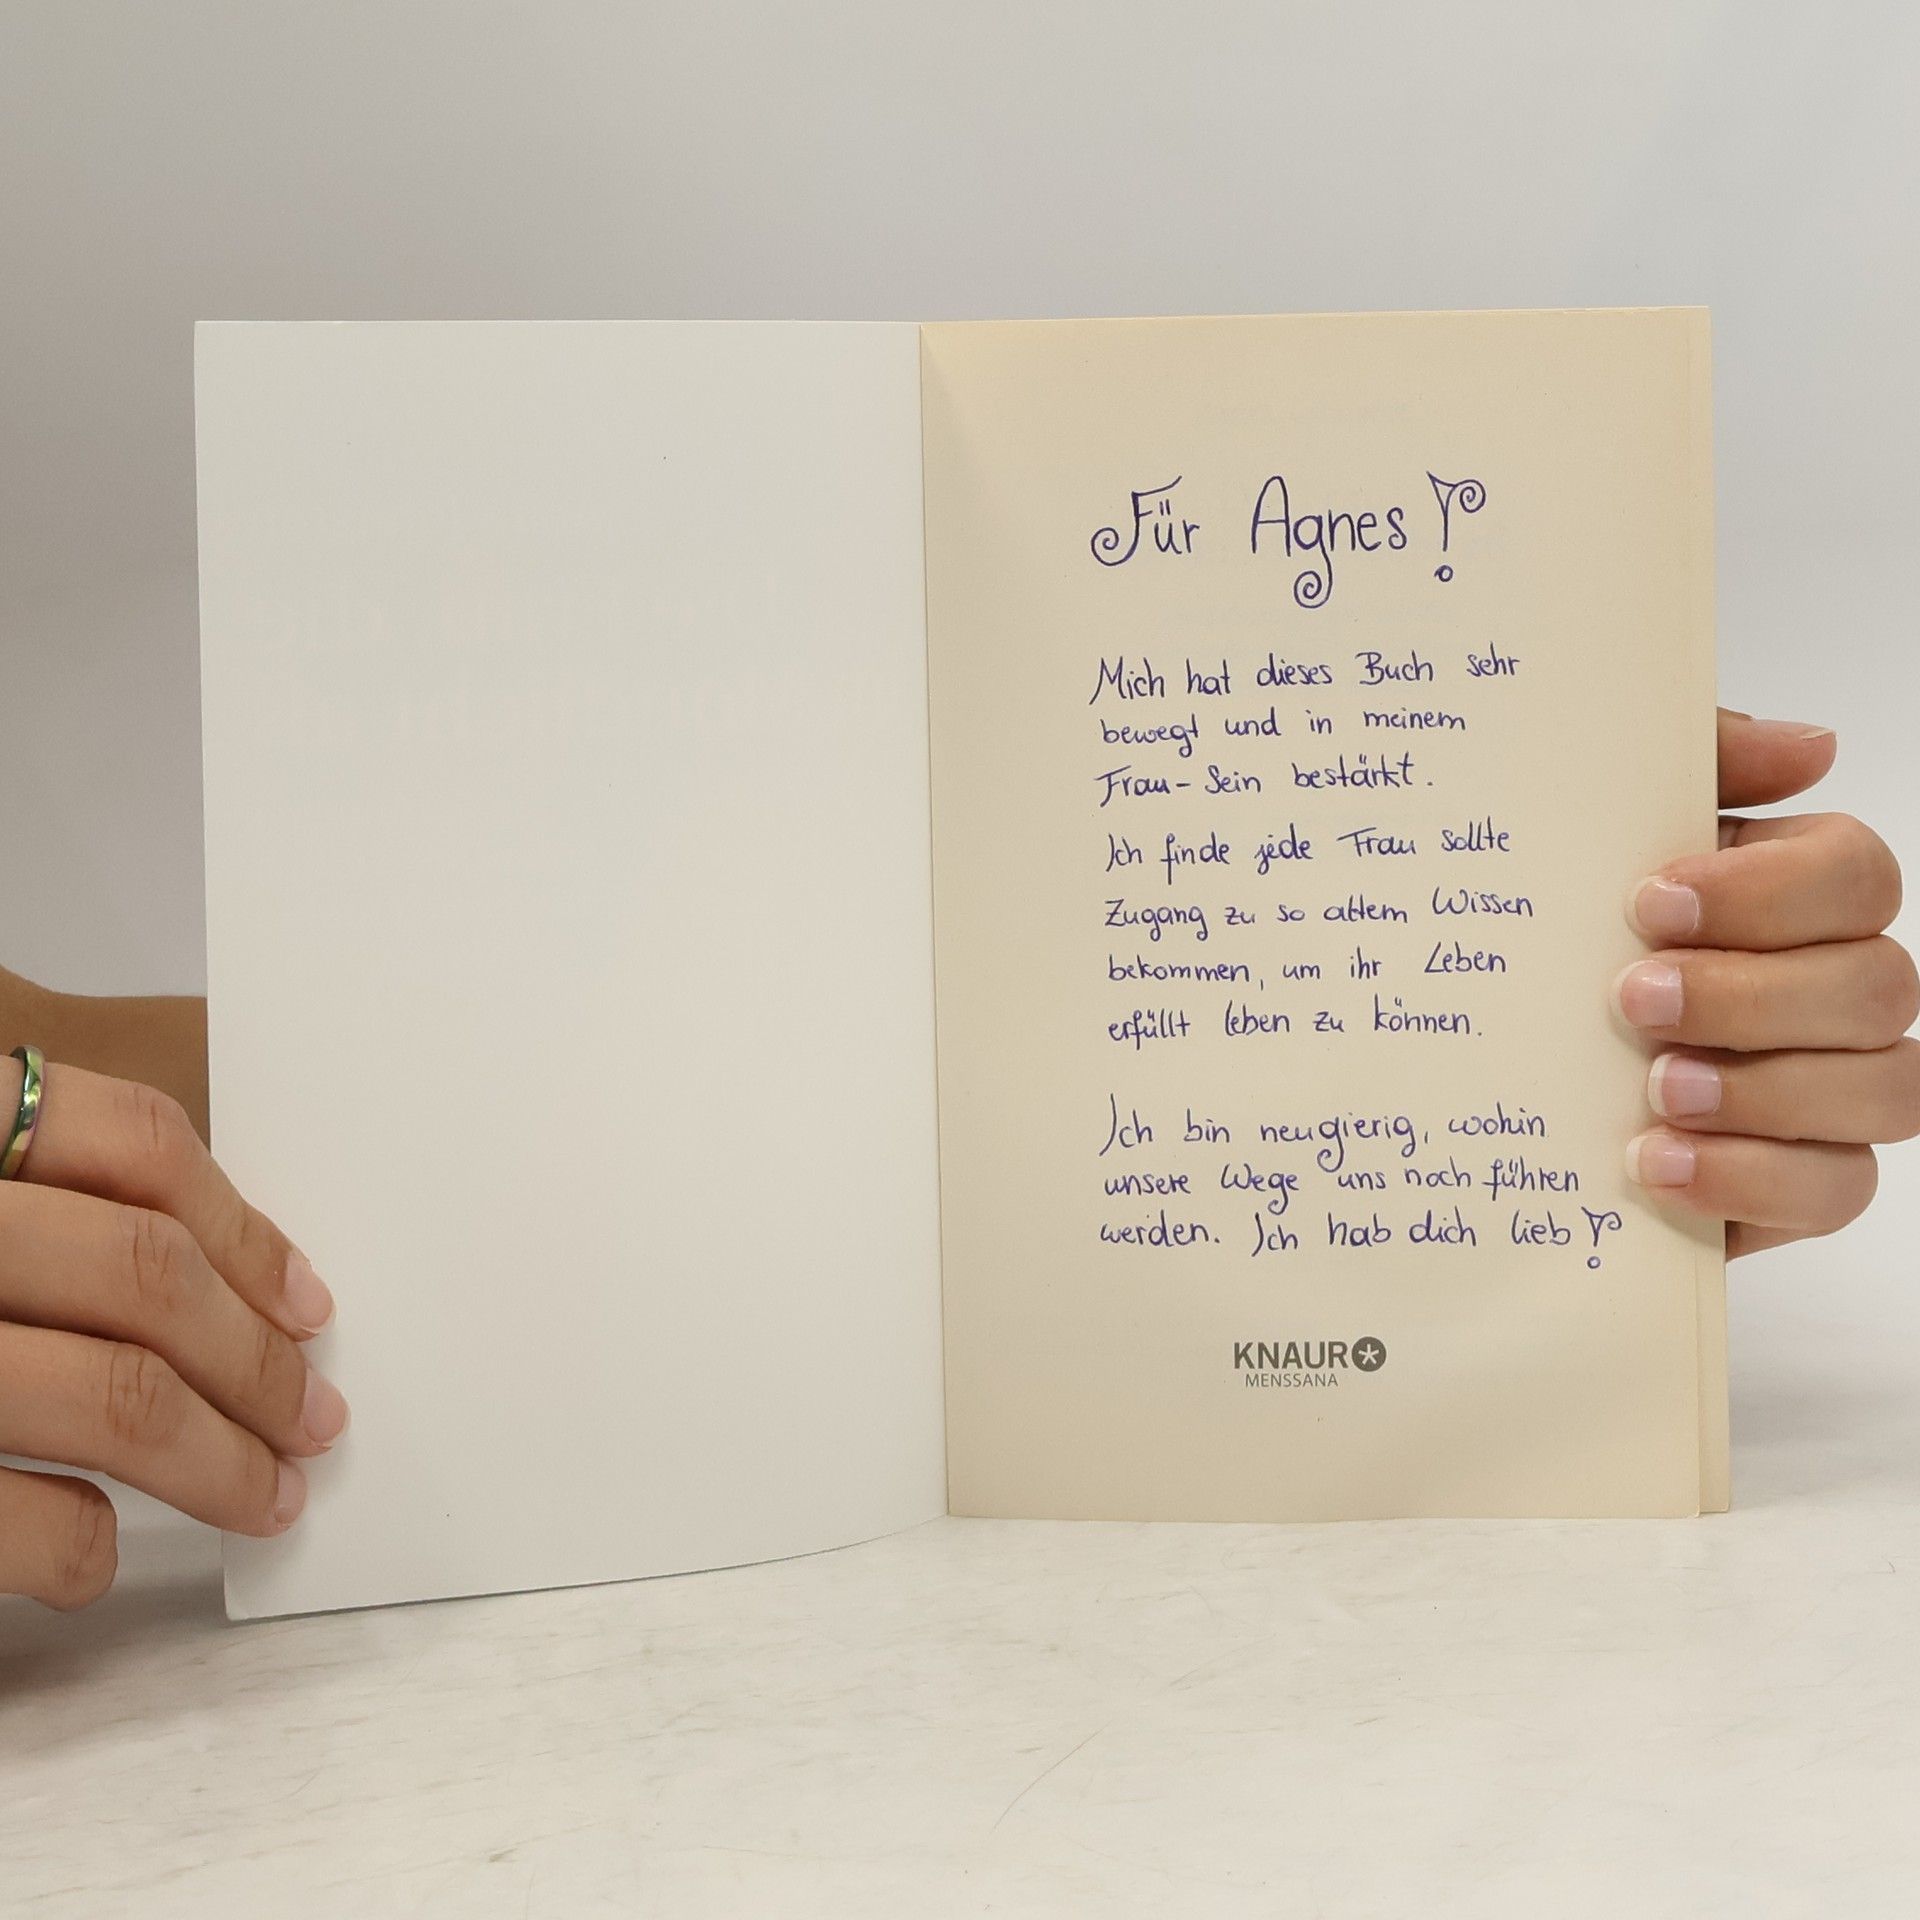 Für Agnes!
Mich hat dieses Buch sehr
bewegt und in meinem
Frau-Sein bestärkt.
Ich finde jede Frau sollte
Zugang zu so altem Wissen
bekommen, um ihr Leben
erfüllt leben zu können.
Ich bin neugierig, wohin
unsere Wege uns noch führen
werden. Ich hab dich lieb!
KNAUR
MENSSANA